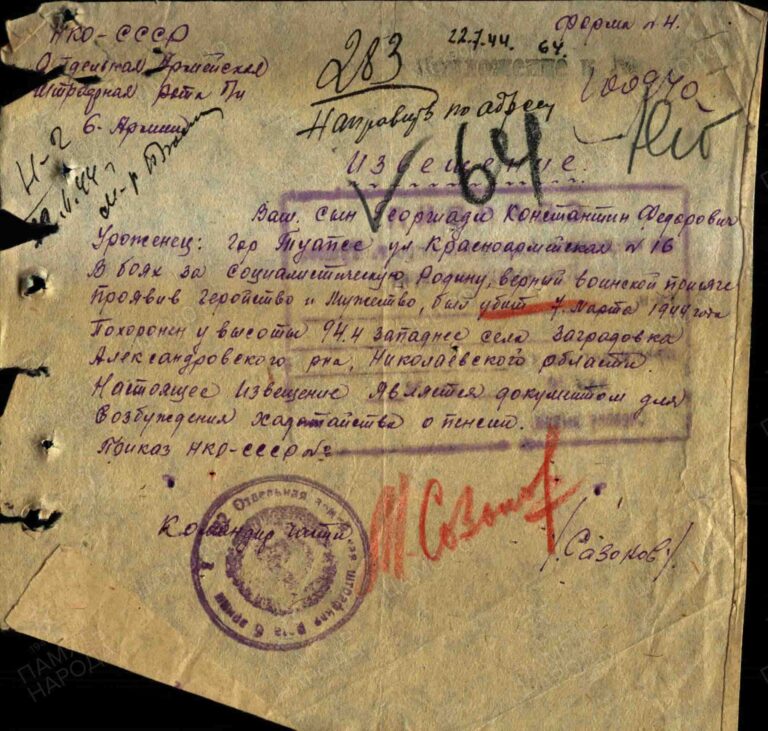 НКО-СССР
Форма №4.
Отдельная Армейская
Штрафная рота П/П
6. Армии
283
22.7.44. 64.
Направить по адресу
64
Извещение.
Ваш. сын Георгиади Константин Федорович
Уроженец: гор Туапсе ул Красноармейская №16
В боях за социалистическую Родину, верный воинской присяге
проявив геройство и мужество, был убит 7. марта 1944 года
Похоронен у высоты 94.4 западнее села Заградовка
Александровского р-на, Николаевского области.
Настоящее извещение является документом для
возбуждения хадотайства о пенсии.
Приказ НКО-СССР №
Командир части
М. Созонов
/Сазонов/.
Отдельная армейская штрафная рота 6 армии
ПАМЯТЬ
НАРОДА